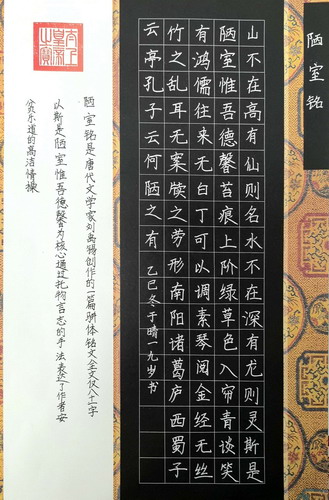 陋室铭
山不在高有仙则名水不在深有龙则灵斯是
陋室惟吾德馨苔痕上阶绿草色入帘青谈笑
有鸿儒往来无白丁可以调素琴阅金经无丝
竹之乱耳无案牍之劳形南阳诸葛庐西蜀子
云亭孔子云何陋之有 乙巳冬于晴一九岁书
太上
皇帝
之寶
陋室铭是唐代文学家刘禹锡创作的一篇骈体铭文全文仅八十一字
以斯是陋室惟吾德馨为核心通过托物言志的手法表达了作者安
贫乐道的高洁情操